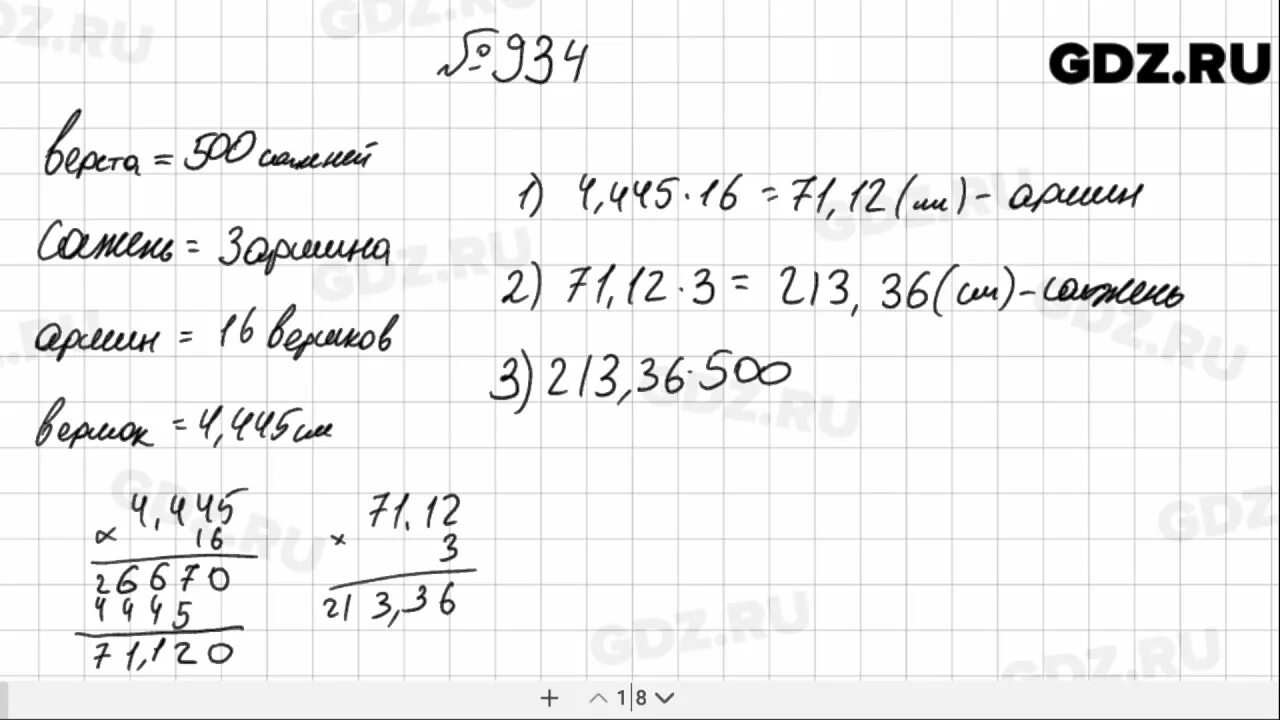 №934
GDZ.RU
верста = 500 саженей
Сажень = 3 аршина
аршин = 16 вершков
вершок = 4,445 см
1) 4,445 · 16 = 71,12 (см) - аршин
2) 71,12 · 3 = 213,36 (см) - сажень
3) 213,36 · 500
4,445
× 16
26670
4445
71,120
71,12
× 3
213,36
+ 1|8